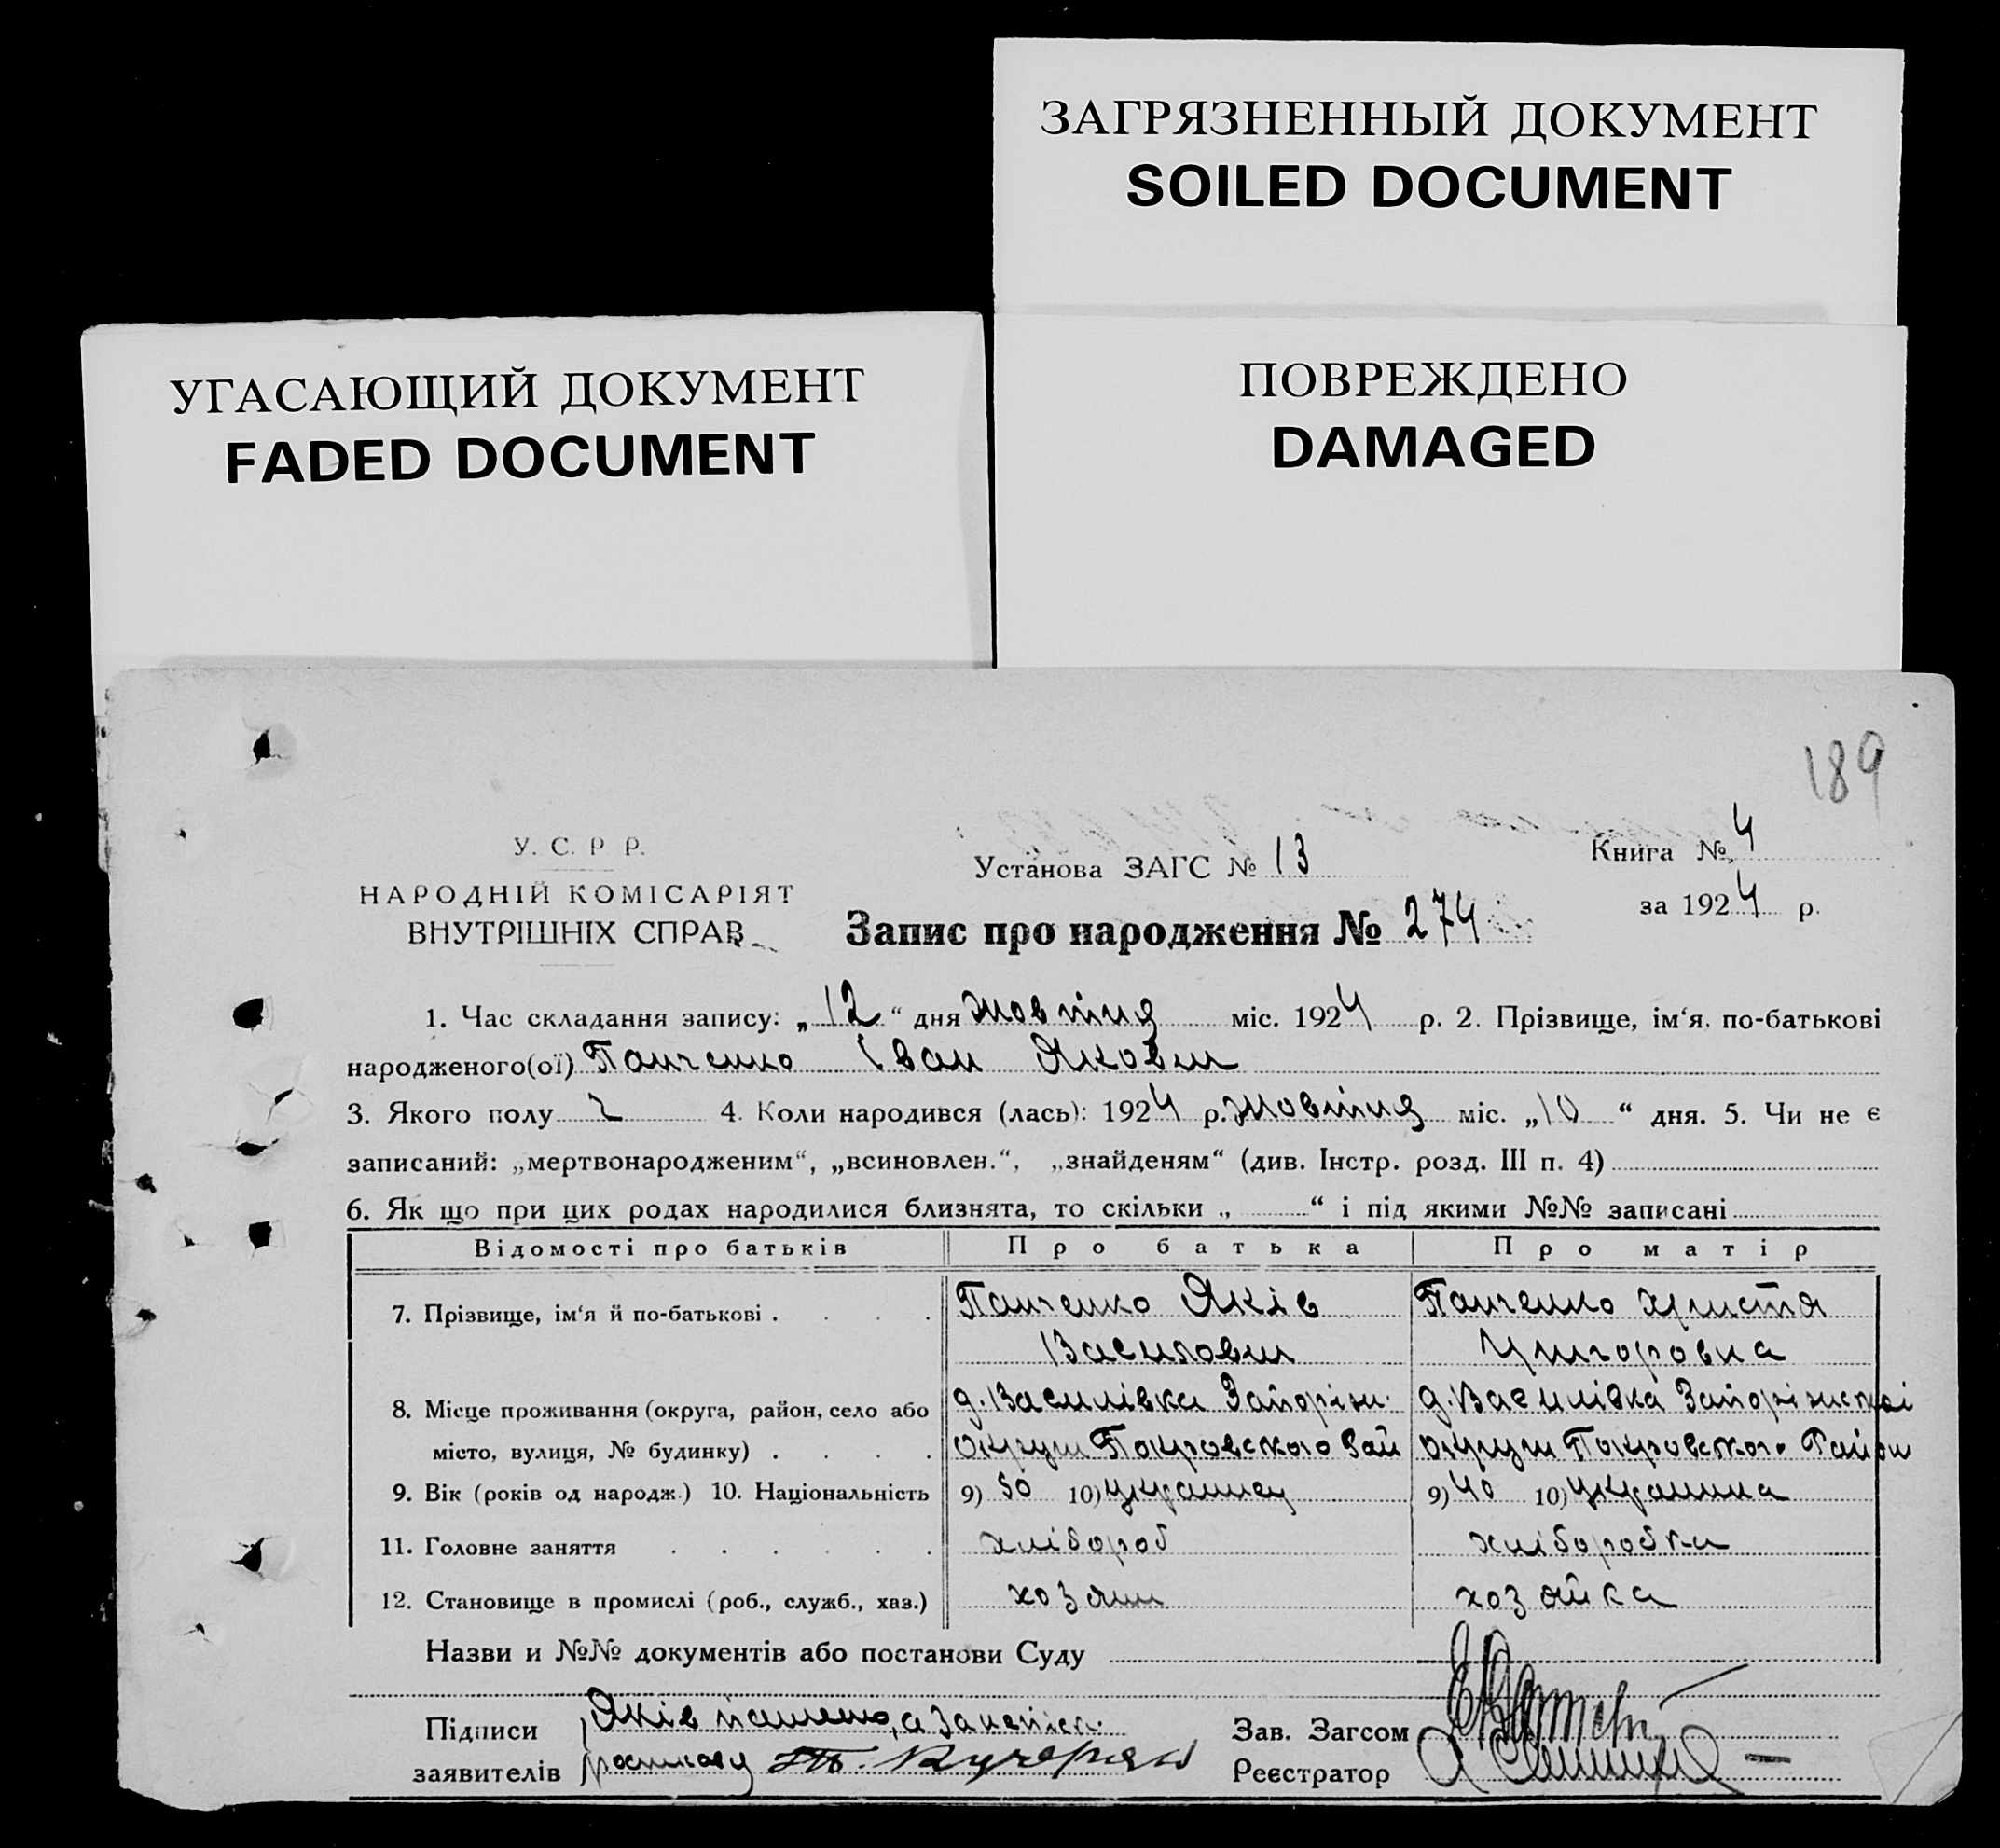 ЗАГРЯЗНЕННЫЙ ДОКУМЕНТ
SOILED DOCUMENT
УГАСАЮЩИЙ ДОКУМЕНТ
FADED DOCUMENT
ПОВРЕЖДЕНО
DAMAGED
189
У. С. Р Р.
НАРОДНІЙ КОМІСАРІЯТ
ВНУТРІШНІХ СПРАВ
Установа ЗАГС № 13
Книга № 4
за 1924 р.
Запис про народження № 274
1. Час складання запису: „12“ дня жовтня міс. 1924 р. 2. Прізвище, ім‘я, по-батькові
народженого(ої) Панченко Іван Якович
3. Якого полу ч 4. Коли народився (лась): 1924 р. жовтня міс. „10“ дня. 5. Чи не є
записаний: „мертвонародженим“, „всиновлен.“, „знайденям“ (див. Інстр. розд. III п. 4)
6. Як що при цих родах народилися близнята, то скільки „ “ і під якими №№ записані
Відомості про батьків Про батька Про матір
7. Прізвище, ім‘я й по-батькові . . . . Панченко Яків Панченко Христя
Василович Григоровна
8. Місце проживання (округа, район, село або д. Василівка Запоріж. д. Василівка Запоріжскої
місто, вулиця, № будинку) . . . . округи Покровского Рай округи Покровского Району
9. Вік (років од народж.) 10. Національність 9) 50 10) українец 9) 40 10) українка
11. Головне заняття . . . . . . хлібороб хлібороб­ка
12. Становище в промислі (роб., служб., хаз.) хозяин хозяйка
Назви и №№ документів або постанови Суду
Підписи Яків Панченко, а за неписм. Зав. Загсом
заявителів росписався Кучеряв Реєстратор